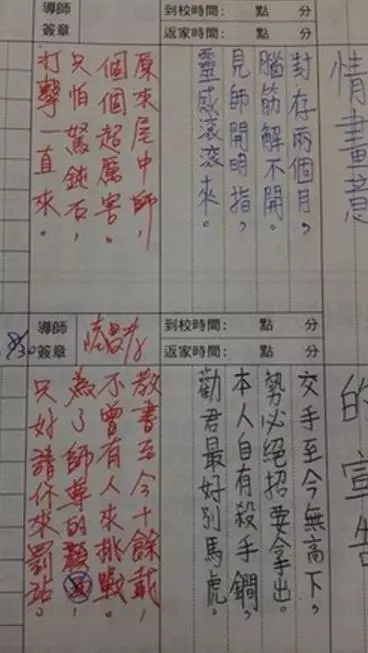 導師
簽章
到校時間： 點 分
返家時間： 點 分
情畫意
封存兩個月，
腦筋解不開。
見師開明指，
靈感滾滾來。
原來尾中師，
個個超厲害。
只怕駑鈍石，
打擊一直來。
導師
簽章
到校時間： 點 分
返家時間： 點 分
的宣告
交手至今無高下，
勢必絕招要拿出。
本人自有殺手鐧，
勸君最好別馬虎。
教書至今十餘載，
不曾有人來挑戰。
為了師尊的顏，
只好請你來罰站。